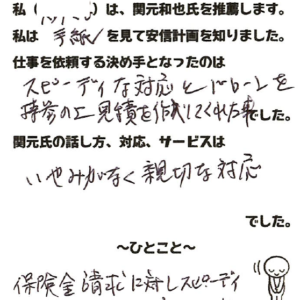 私（　　　）は、関元和也氏を推薦します。
私は 手紙 を見て安信計画を知りました。
仕事を依頼する決め手となったのは
スピーディな対応とドローンを
持参の工見積を作成してくれた事でした。
関元氏の話し方、対応、サービスは
いやみがなく親切な対応
でした。
～ひとこと～
保険金請求に対しスピーディ